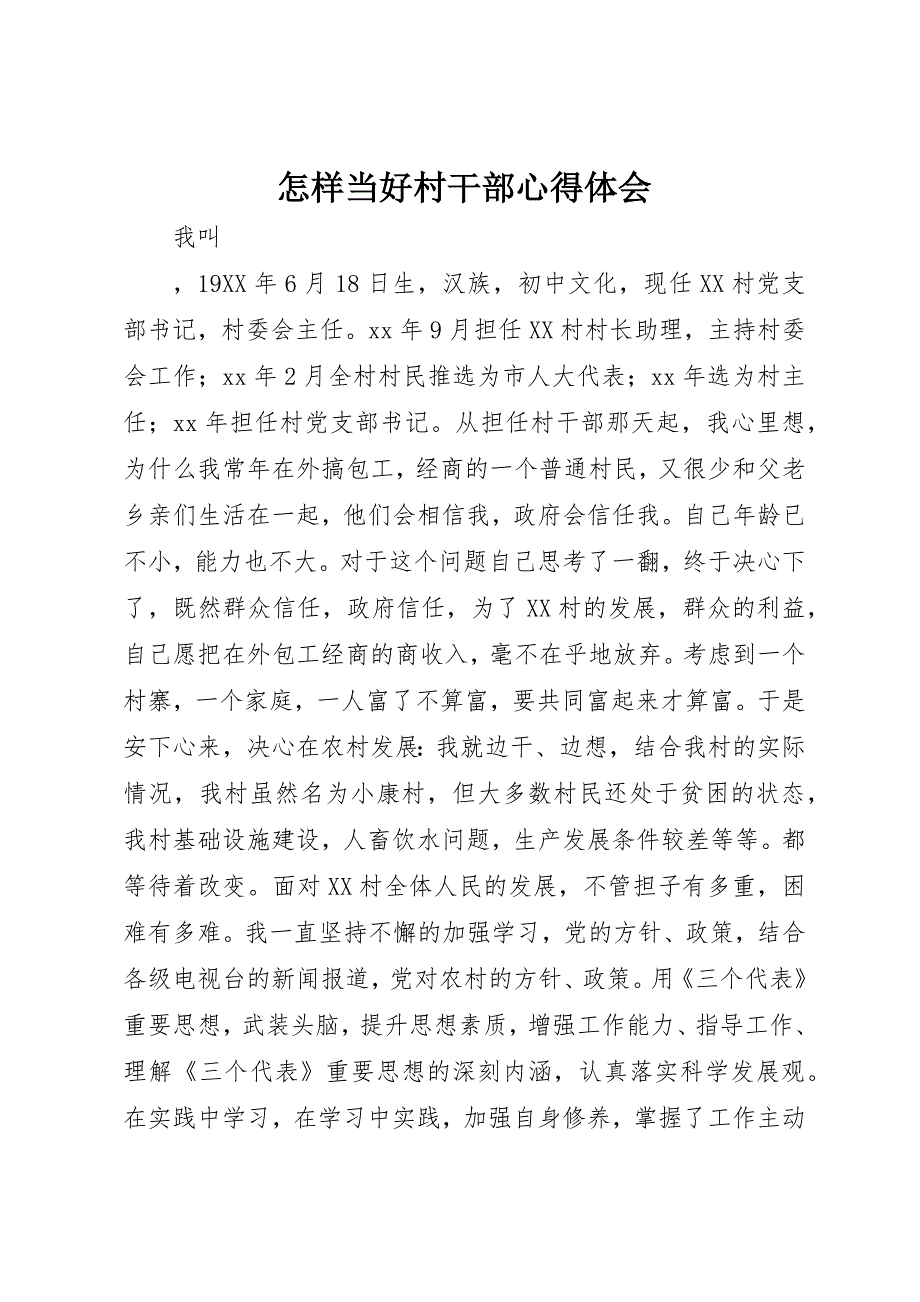 怎样当好村干部心得体会
我叫
，19XX 年 6 月 18 日生，汉族，初中文化，现任 XX 村党支
部书记，村委会主任。xx 年 9 月担任 XX 村村长助理，主持村委
会工作；xx 年 2 月全村村民推选为市人大代表；xx 年选为村主
任；xx 年担任村党支部书记。从担任村干部那天起，我心里想，
为什么我常年在外搞包工，经商的一个普通村民，又很少和父老
乡亲们生活在一起，他们会相信我，政府会信任我。自己年龄已
不小，能力也不大。对于这个问题自己思考了一翻，终于决心下
了，既然群众信任，政府信任，为了 XX 村的发展，群众的利益，
自己愿把在外包工经商的商收入，毫不在乎地放弃。考虑到一个
村寨，一个家庭，一人富了不算富，要共同富起来才算富。于是
安下心来，决心在农村发展：我就边干、边想，结合我村的实际
情况，我村虽然名为小康村，但大多数村民还处于贫困的状态，
我村基础设施建设，人畜饮水问题，生产发展条件较差等等。都
等待着改变。面对 XX 村全体人民的发展，不管担子有多重，困
难有多难。我一直坚持不懈的加强学习，党的方针、政策，结合
各级电视台的新闻报道，党对农村的方针、政策。用《三个代表》
重要思想，武装头脑，提升思想素质，增强工作能力、指导工作、
理解《三个代表》重要思想的深刻内涵，认真落实科学发展观。
在实践中学习，在学习中实践，加强自身修养，掌握了工作主动